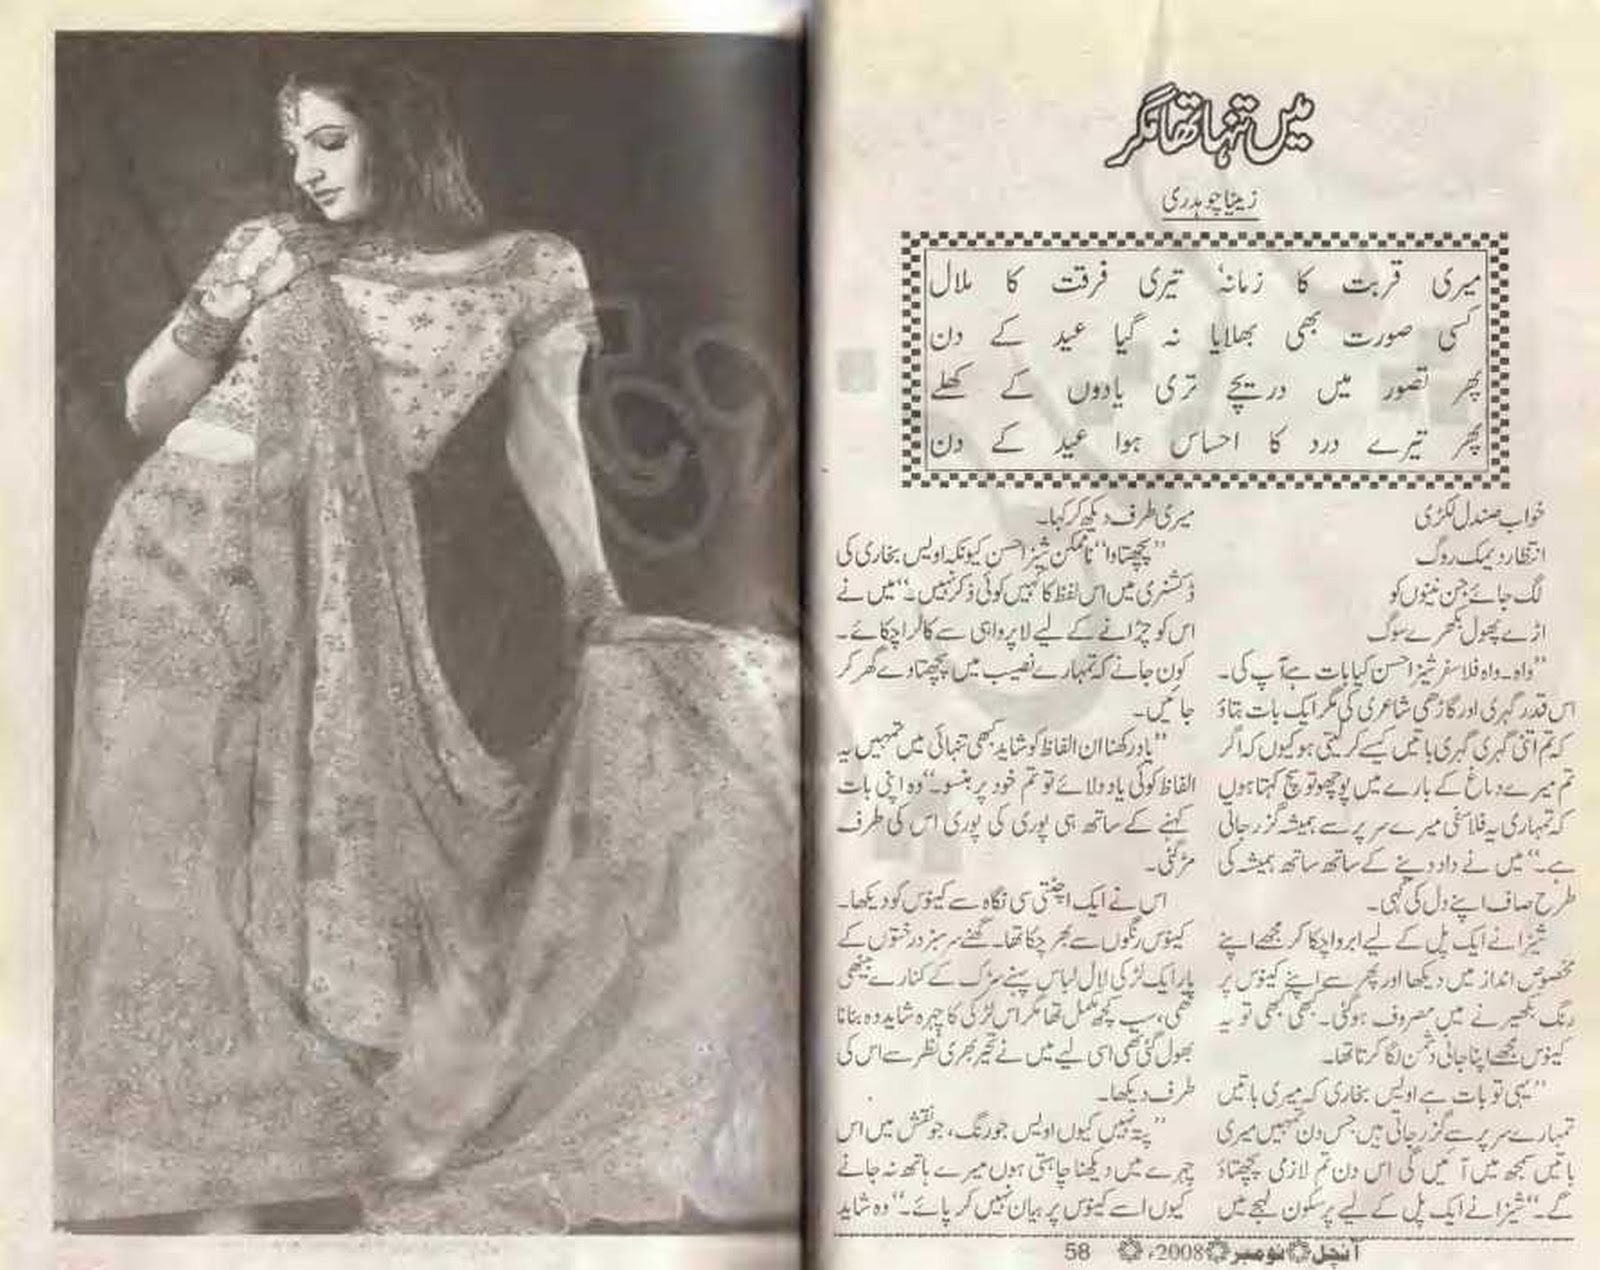 میں تنہا تھا مگر
زینیا چوہدری
میری قربت کا زمانہ، تیری فرقت کا ملال
کسی صورت بھی بھلایا نہ گیا عید کے دن
پھر تصور میں دریچے تری یادوں کے کھلے
پھر تیرے درد کا احساس ہوا عید کے دن
خواب صندل لکڑی
انتظار دیمک روگ
لگ جائے جن نینوں کو
اڑے پھول بکھرے سوگ
”واہ۔ واہ فلاسفر شیزا حسن کیا بات ہے آپ کی۔
اس قدر گہری اور گاڑھی شاعری کی مگر ایک بات بتاؤ
کہ تم اتنی گہری گہری باتیں کیسے کر لیتی ہو کیوں کہ اگر
تم میرے دماغ کے بارے میں پوچھو تو سچ کہتا ہوں
کہ تمہاری یہ فلاسفی میرے سر پر سے ہمیشہ گزر جاتی
ہے۔“ میں نے داد دینے کے ساتھ ساتھ ہمیشہ کی
طرح صاف اپنے دل کی کہی۔
شیزا نے ایک پل کے لیے ابرو اچکا کر مجھے اپنے
مخصوص انداز میں دیکھا اور پھر سے اپنے کینوس پر
رنگ بکھیرنے میں مصروف ہو گئی۔ کبھی کبھی تو یہ
کینوس مجھے اپنا جانی دشمن لگا کرتا تھا۔
”یہی تو بات ہے اویس بخاری کہ میری باتیں
تمہارے سر پر سے گزر جاتی ہیں جس دن تمہیں میری
باتیں سمجھ میں آئیں گی اس دن تم لازمی پچھتاؤ
گے۔“ شیزا نے ایک پل کے لیے پرسکون لہجے میں
میری طرف دیکھ کر کہا۔
”پچھتاوا“ ناممکن شیزا حسن کیونکہ اویس بخاری کی
ڈکشنری میں اس لفظ کا کہیں کوئی ذکر نہیں۔“ میں نے
اس کو چڑانے کے لیے لاپرواہی سے کالر اچکائے۔
کون جانے کہ تمہارے نصیب میں پچھتاوے گھر کر
جائیں۔
”یاد رکھنا ان الفاظ کو شاید کبھی تنہائی میں تمہیں یہ
الفاظ کوئی یاد دلائے تو تم خود پر ہنسو۔“ وہ اپنی بات
کہنے کے ساتھ ہی پوری کی پوری اس کی طرف
مڑ گئی۔
اس نے ایک اچٹتی سی نگاہ سے کینوس کو دیکھا۔
کینوس رنگوں سے بھر چکا تھا۔ گھنے سرسبز درختوں کے
پار ایک لڑکی لال لباس پہنے سڑک کے کنارے بیٹھی
تھی، سب کچھ مکمل تھا مگر اس لڑکی کا چہرہ شاید وہ بنانا
بھول گئی تھی اسی لیے میں نے تحیر بھری نظر سے اس کی
طرف دیکھا۔
”پتہ نہیں کیوں اویس جو رنگ، جو نقش میں اس
چہرے میں دیکھنا چاہتی ہوں میرے ہاتھ نہ جانے
کیوں اسے کینوس پر بیان نہیں کر پائے۔“ وہ شاید
آنچل نومبر 2008ء 58